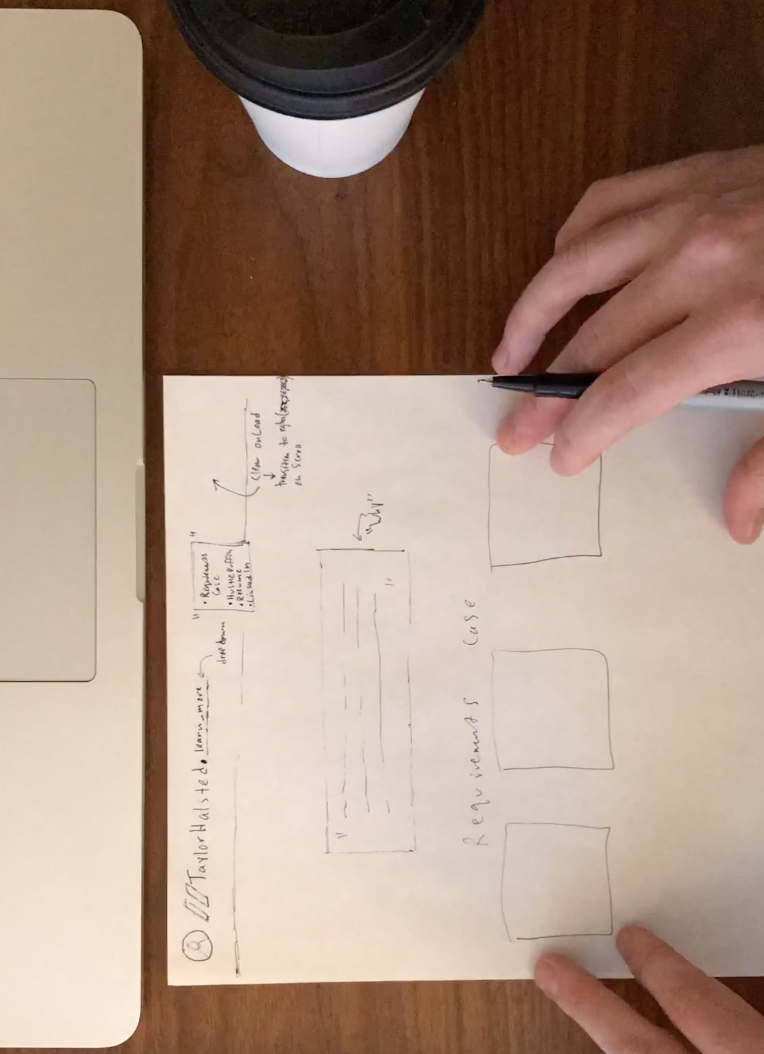 TaylorHalsted. learn_more
drop down
• Requirements
Case
• Hustle Puffin
• Resume
• LinkedIn
Clear onLoad
transition to
on Scroll
"
"
"why"
Requirements Case